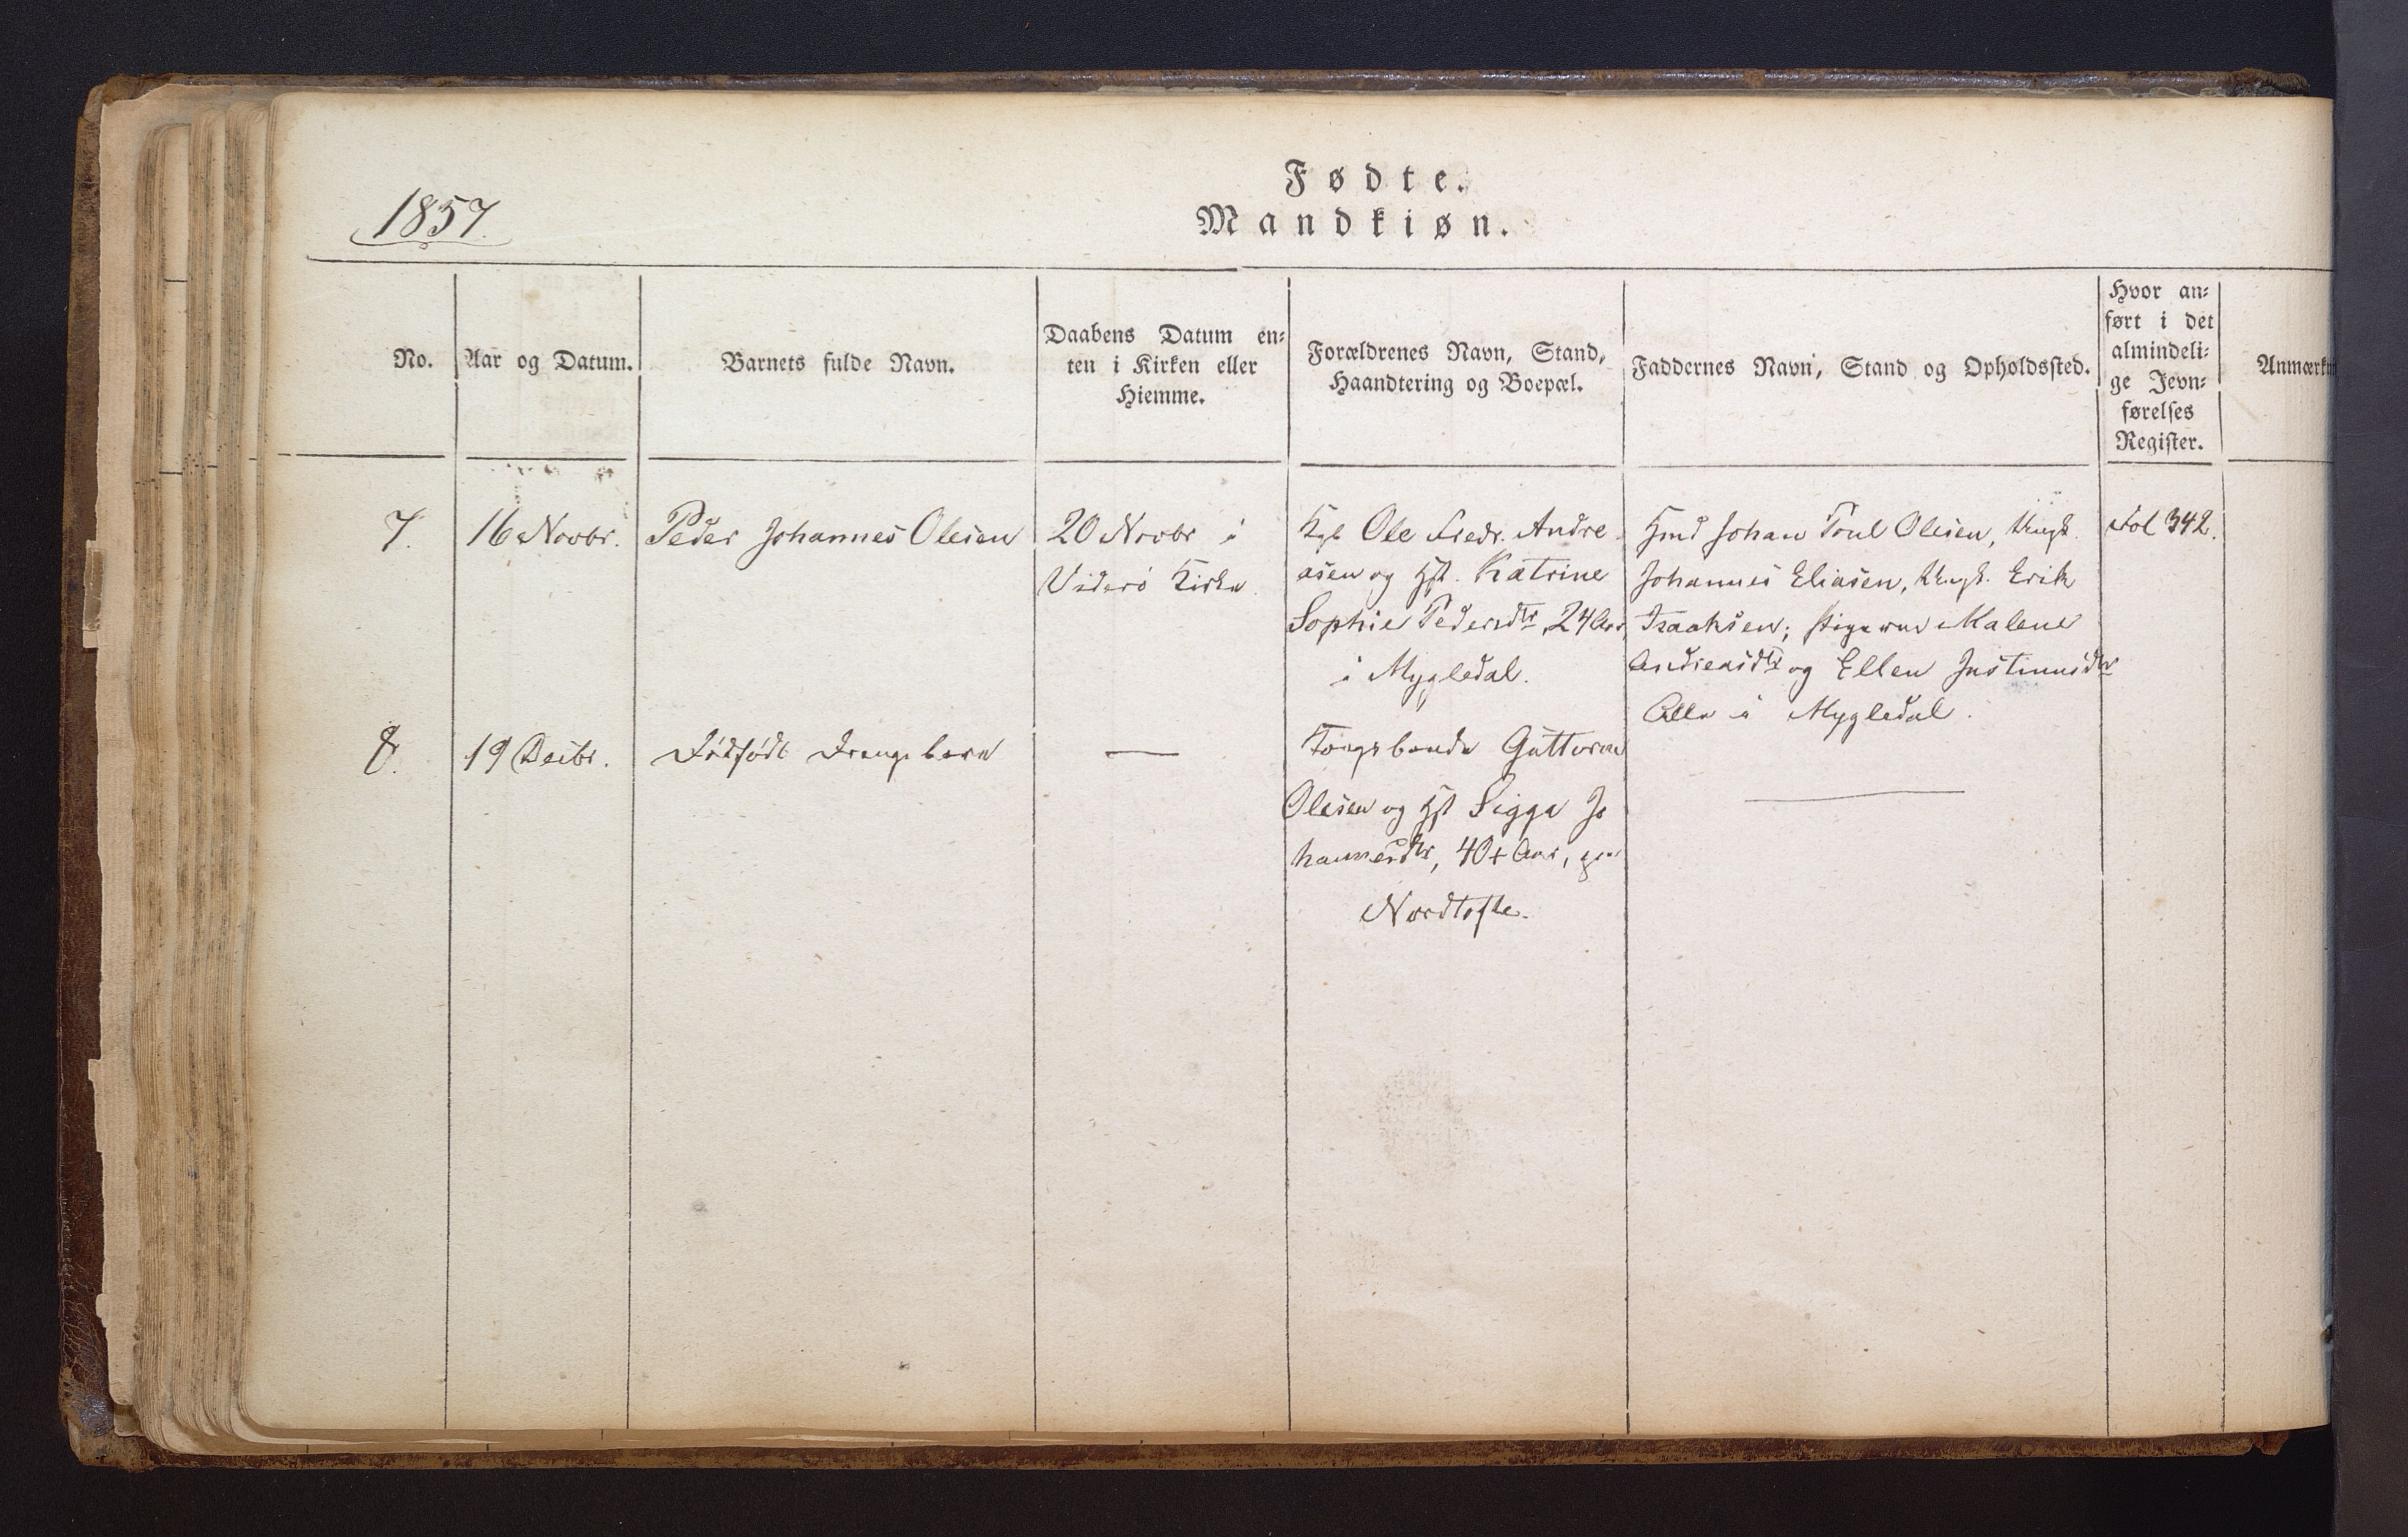 1857.
Fødte.
Mandkiøn.
No.
Aar og Datum.
Barnets fulde Navn.
Daabens Datum en-
ten i Kirken eller
Hiemme.
Forældrenes Navn, Stand,
Haandtering og Boepæl.
Faddernes Navn, Stand og Opholdssted.
Hvor an-
ført i det
almindeli-
ge Jevn-
førelses
Register.
7.
16 Novbr.
Peder Johannes Olesen
20 Novbr i
Viderö Kirke
Ole Fredr. Andre
asen og Hst. Katrine
Sophie Pedersdtr, 24 Aar
i Mygledal.
Johan Poul Olesen, Ungk.
Johannes Eliasen, Ungk. Erik
Isaaksen; Pigerne Malene
Andreasdtr og Ellen Justinusdtr
Alle i Mygledal.
Fol 342.
8.
19 Decbr.
Dödfödt Drengebarn
Kongsbonde Guttorm
Olesen og Hst Sigga Jo
hannesdtr, 40+ Aar,
Nordtofte.